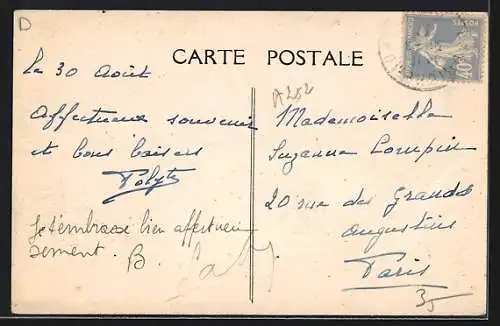 D
CARTE POSTALE
POSTES
40c
Le 30 Août
Affectueux souvenir
et bons baisers
A252
Mademoiselle
Suzanne
20 rue des Grands
Augustins
Paris
Je t'embrasse bien affectueu
sement. B.
35